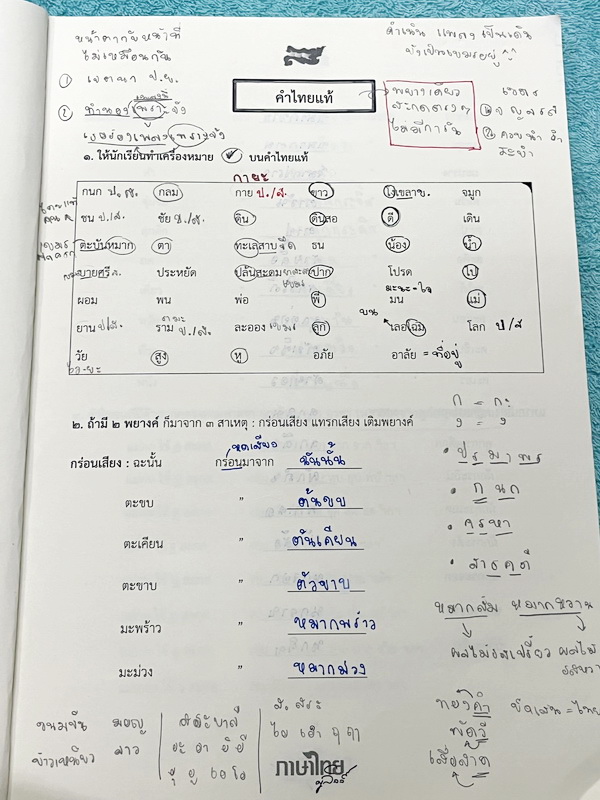 หน้าตากับหน้าที่
ไม่เหมือนกัน
① เจตนา ป.ข.
ดำเนิน เพลง เป็นเดิน
คำไทยแท้
พยางเดียว
สะกดตรงๆ
ไม่มีการัน
๑. ให้นักเรียนทำเครื่องหมาย ✓ บนคำไทยแท้
กายะ
กนก ป./ส. กลม กาย ป./ส. ขาว โขเขลา จมูก
ชน ป./ส. ชัย ป./ส. ดิน ดินสอ ตี เดิน
ตะบันหมาก ตา ทะเลสาบ ธน น้อง น้ำ
บายศรี ประหยัด ปล้นสะดม ปาก โปรด ไป
มะนะ-ใจ
ผอม พน พ่อ พี่ มน แม่
บน
ยาน ป./ส. ราม ป./ส. ละออง เขมร ลูก เลอโฉม โลก ป/ส
วัย สูง หู อภัย อาลัย = ที่อยู่
๒. ถ้ามี ๒ พยางค์ ก็มาจาก ๓ สาเหตุ : กร่อนเสียง แทรกเสียง เติมพยางค์
หดเสียง
กร่อนเสียง : ฉะนั้น กร่อนมาจาก ฉันนั้น
ตะขบ " ต้นขบ
ตะเคียน " ต้นเคียน
ตะขาบ " ตัวขาบ
มะพร้าว " หมากพร้าว
มะม่วง " หมากม่วง
ก = กะ
ว = ว
• ปรมาพร
• กนก
• ครหา
• สารคดี
หมากส้ม หมากหวาน
ผลไม้รสเปรี้ยว ผลไม้
รสหวาน
ขนมจีน มอญ
ข้าวเหนียว ลาว
ส. สระ
ไอ เอา ฤ ฦ
อะ อา อิ อี
อุ อู เอ โอ
ทองคำ
พัดวี
เสื่อสาด
ภาษาไทย